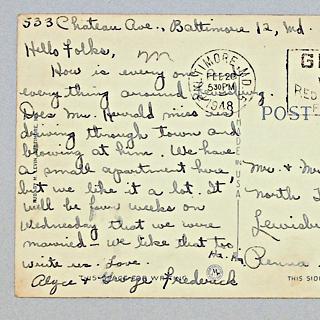 533 Chateau Ave., Baltimore 12, Md.
Hello Folks,
How is every one
everything around
Does Mr. Harold miss us
driving through town and
blowing at him. We have
a small apartment here,
but we like it a lot. It
will be four weeks on
Wednesday that we were
married - we like that too
Ha. Ha.
write us. Love.
Alyce & George Frederick
BALTIMORE, MD.
FEB 26
530 PM
1948
POST
Mr. & Mr
North
Lewisbu
Penna
THIS SPACE FOR WRITING
THIS SIDE